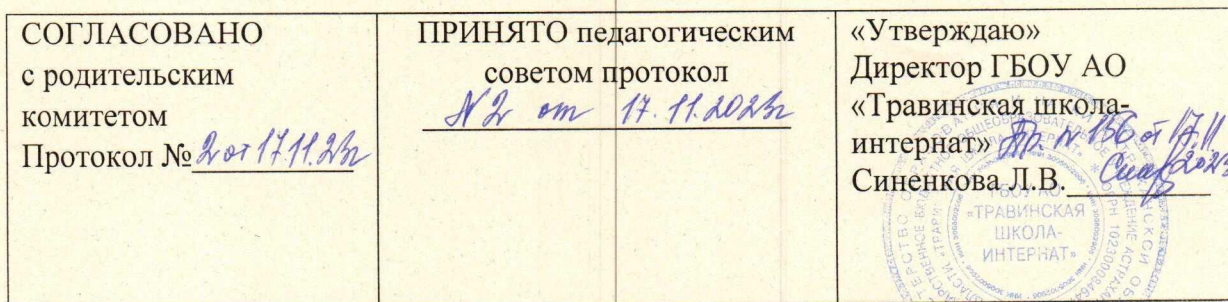 СОГЛАСОВАНО
с родительским
комитетом
Протокол № 2 от 17.11.23г
ПРИНЯТО педагогическим
советом протокол
№ 2 от 17.11.2023г
«Утверждаю»
Директор ГБОУ АО
«Травинская школа-
интернат» Пр. № 156 от 17.11
2023
Синенкова Л.В.
ГБОУ АО
«ТРАВИНСКАЯ
ШКОЛА-
ИНТЕРНАТ»